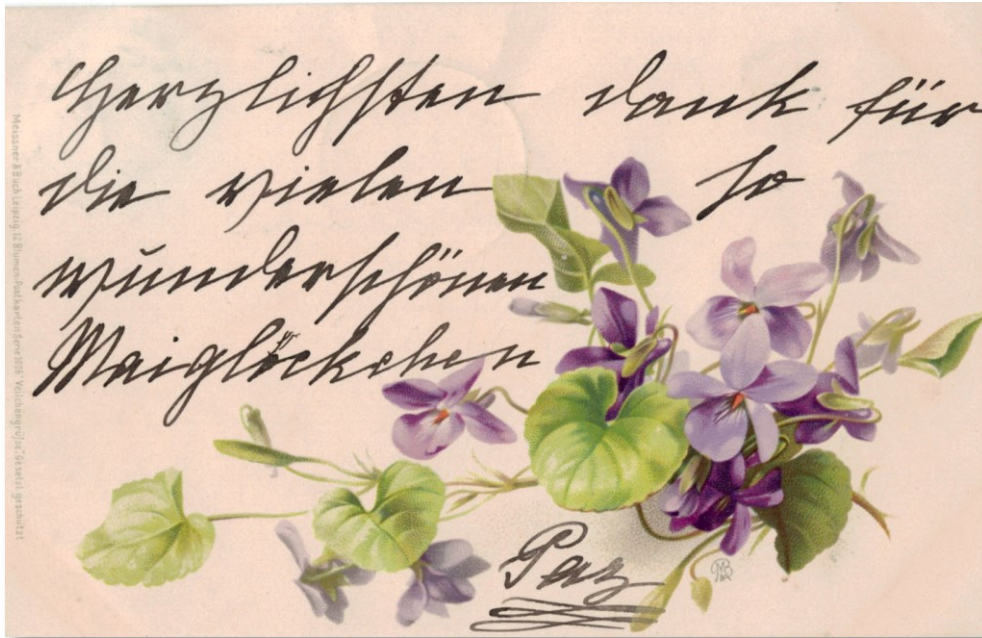 Herzlichsten dank für
die vielen so
wunderschönen
Maiglöckchen
Paz
Meissner & Buch Leipzig. 12 Blumen-Postkarten Serie 1026 "Veilchengrüße", Gesetzl. geschützt
MB